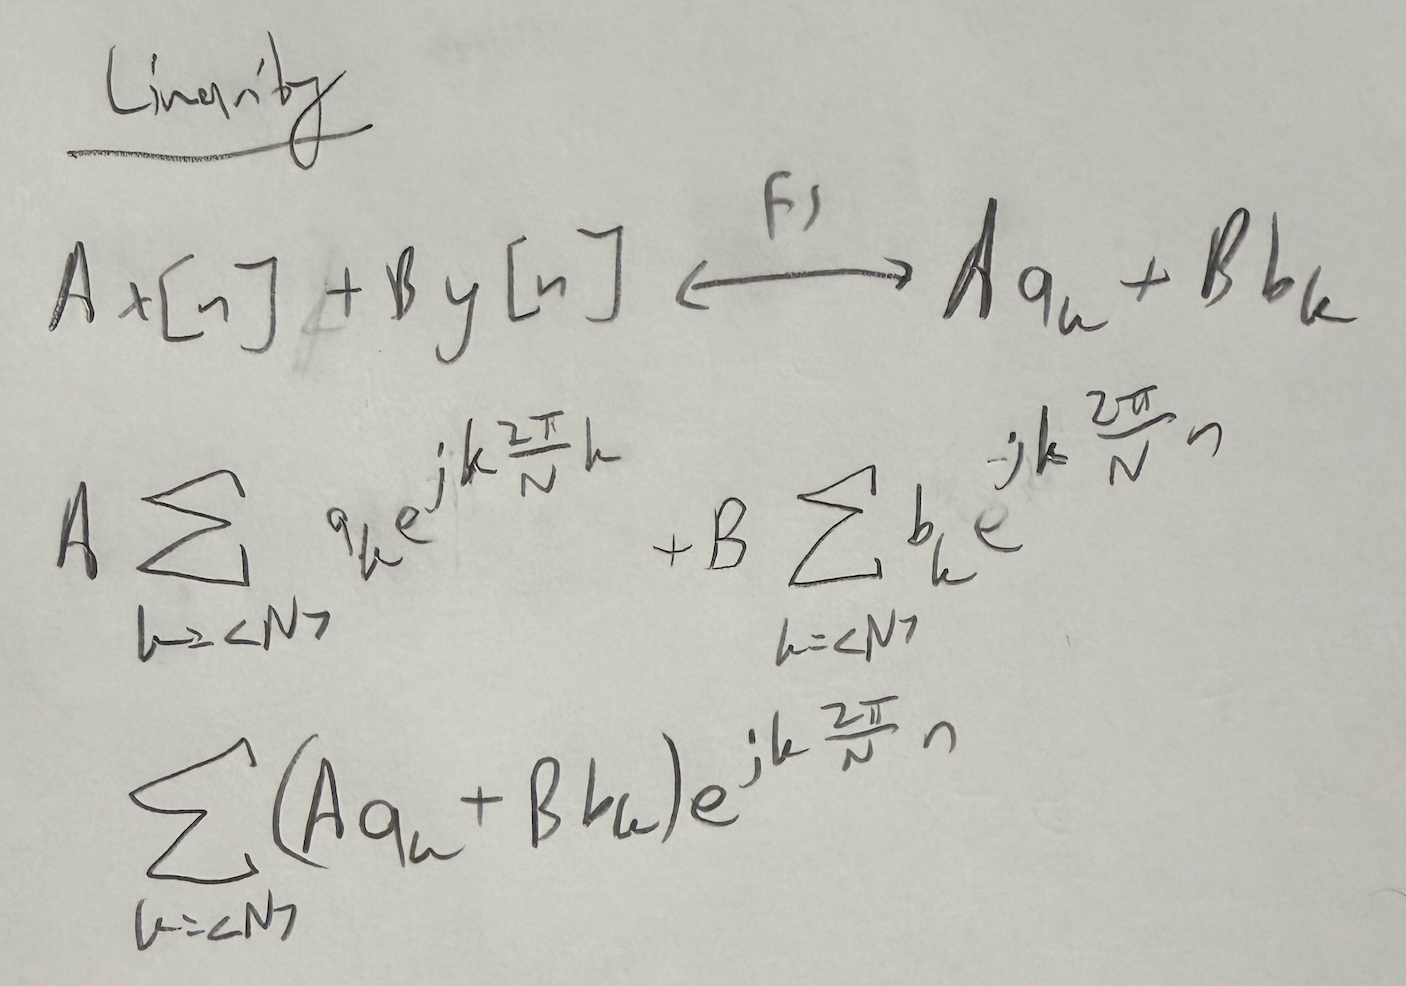 Linearity
FS
A x[n] + B y[n] ⟷ A a_k + B b_k
A ∑_{k=<N>} a_k e^{jk 2π/N n} + B ∑_{k=<N>} b_k e^{jk 2π/N n}
∑_{k=<N>} (A a_k + B b_k) e^{jk 2π/N n}